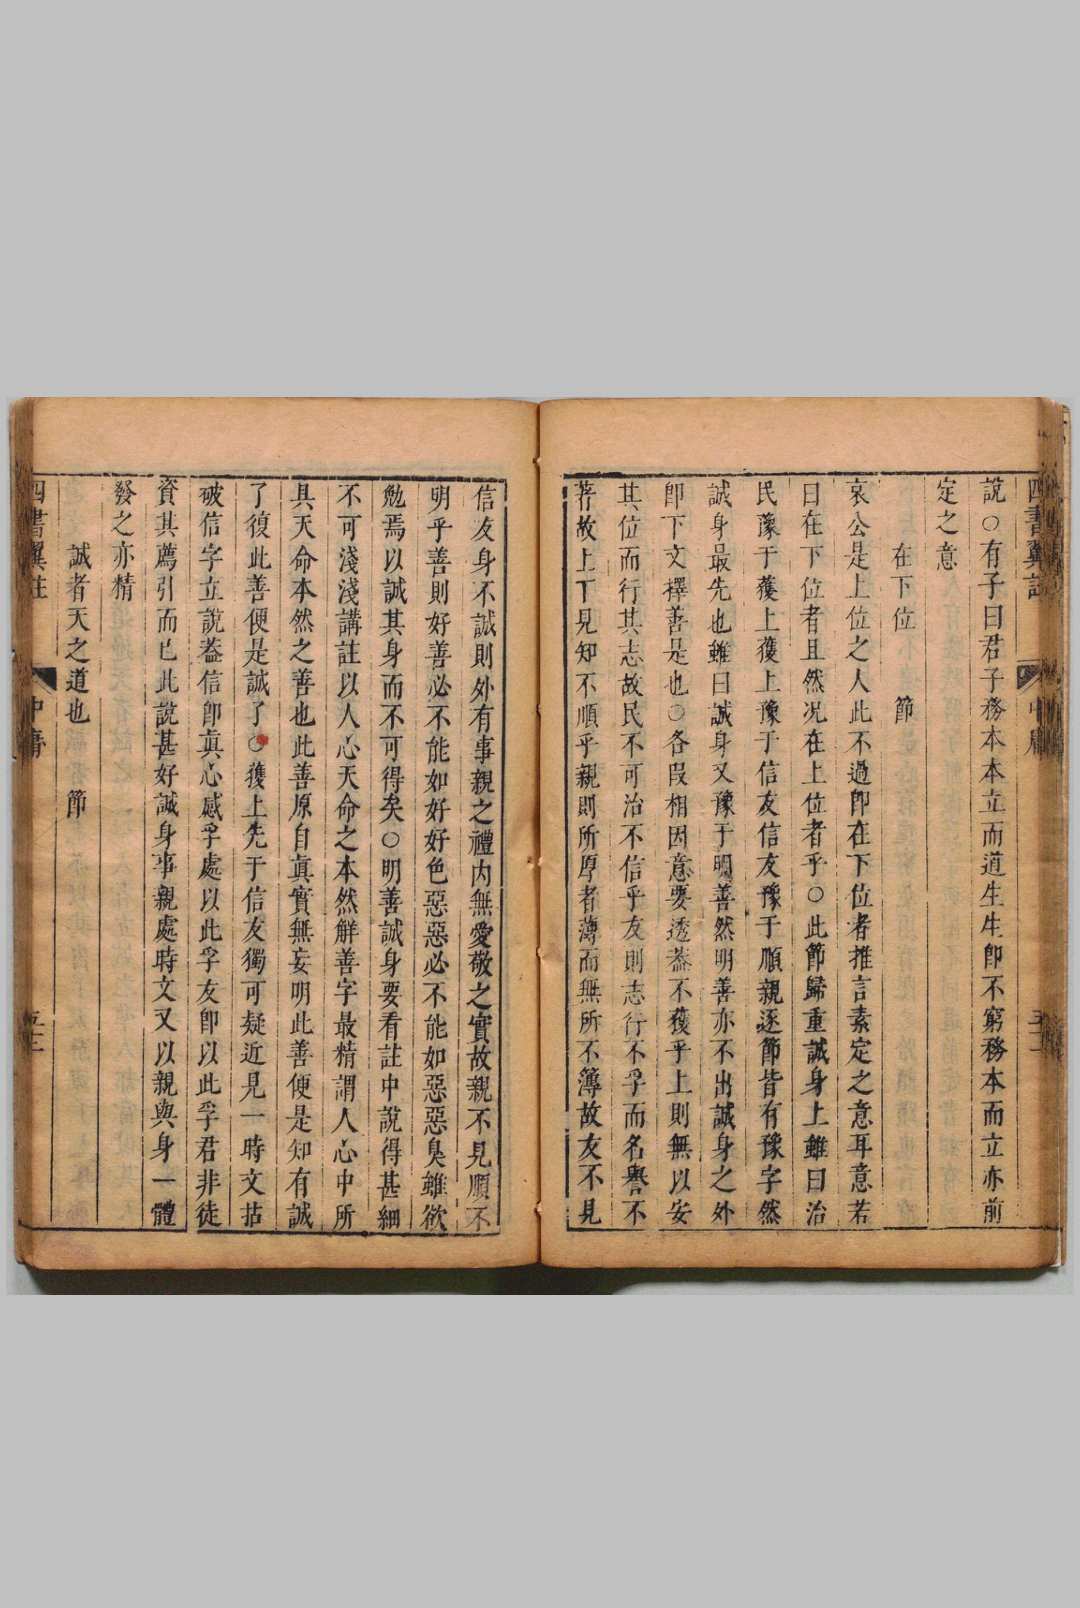 四書翼註
中庸
說○有子曰君子務本本立而道生生卽不窮務本而立亦前
定之意
在下位　節
哀公是上位之人此不過卽在下位者推言素定之意耳意若
曰在下位者且然况在上位者乎○此節歸重誠身上雖曰治
民豫于獲上獲上豫于信友信友豫于順親逐節皆有豫字然
誠身最先也雖曰誠身又豫于明善然明善亦不出誠身之外
卽下文擇善是也○各段相因意要透葢不獲乎上則無以安
其位而行其志故民不可治不信乎友則志行不孚而名譽不
著故上下見知不順乎親則所厚者薄而無所不簿故友不見
信友身不誠則外有事親之禮內無愛敬之實故親不見順不
明乎善則好善必不能如好好色惡惡必不能如惡惡臭雖欲
勉焉以誠其身而不可得矣○明善誠身要看註中說得甚細
不可淺淺講註以人心天命之本然解善字最精謂人心中所
具天命本然之善也此善原自眞實無妄明此善便是知有誠
了復此善便是誠了○獲上先于信友獨可疑近見一時文拈
破信字立說葢信卽眞心感孚處以此孚友卽以此孚君非徒
資其薦引而已此說甚好誠身事親處時文又以親與身一體
發之亦精
誠者天之道也　節
四書翼註
中庸